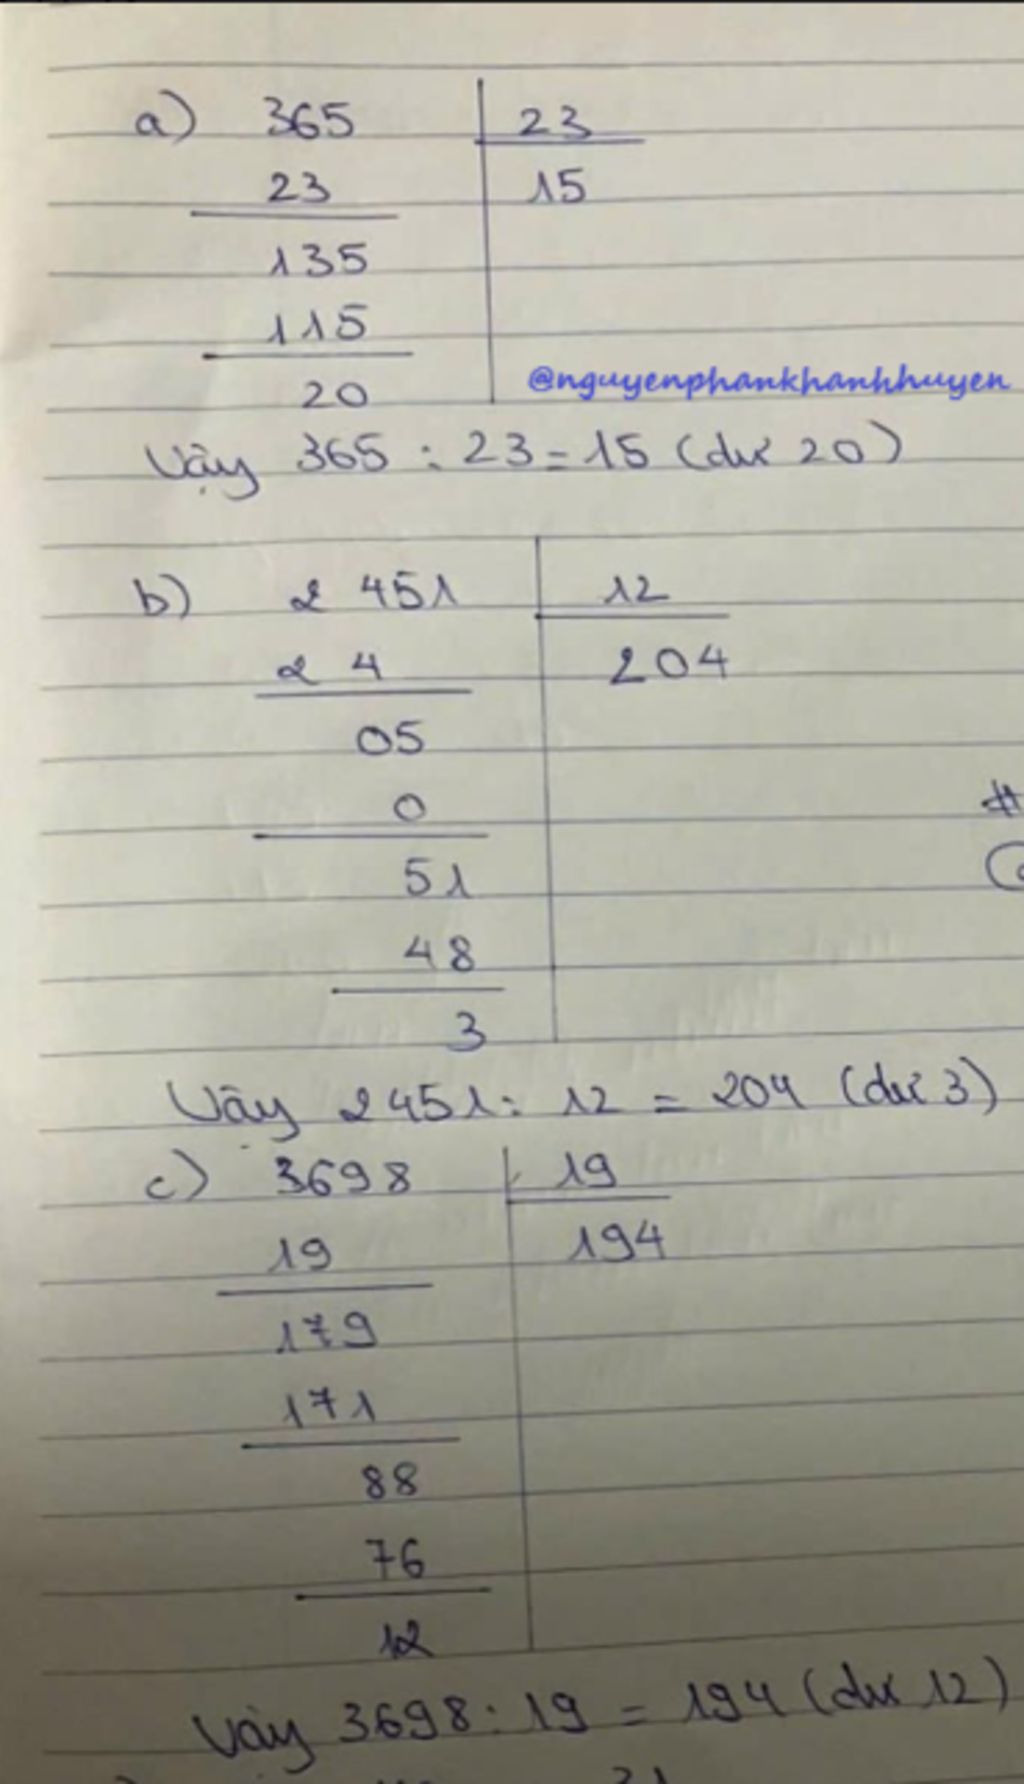 a) 365 23
23 15
135
115
20
@nguyenphankhanhhuyen
Vậy 365 : 23 = 15 (dư 20)
b) 2 451 12
2 4 204
05
0
#
51
48
3
Vậy 2451 : 12 = 204 (dư 3)
c) 3698 19
19 194
179
171
88
76
12
Vậy 3698 : 19 = 194 (dư 12)